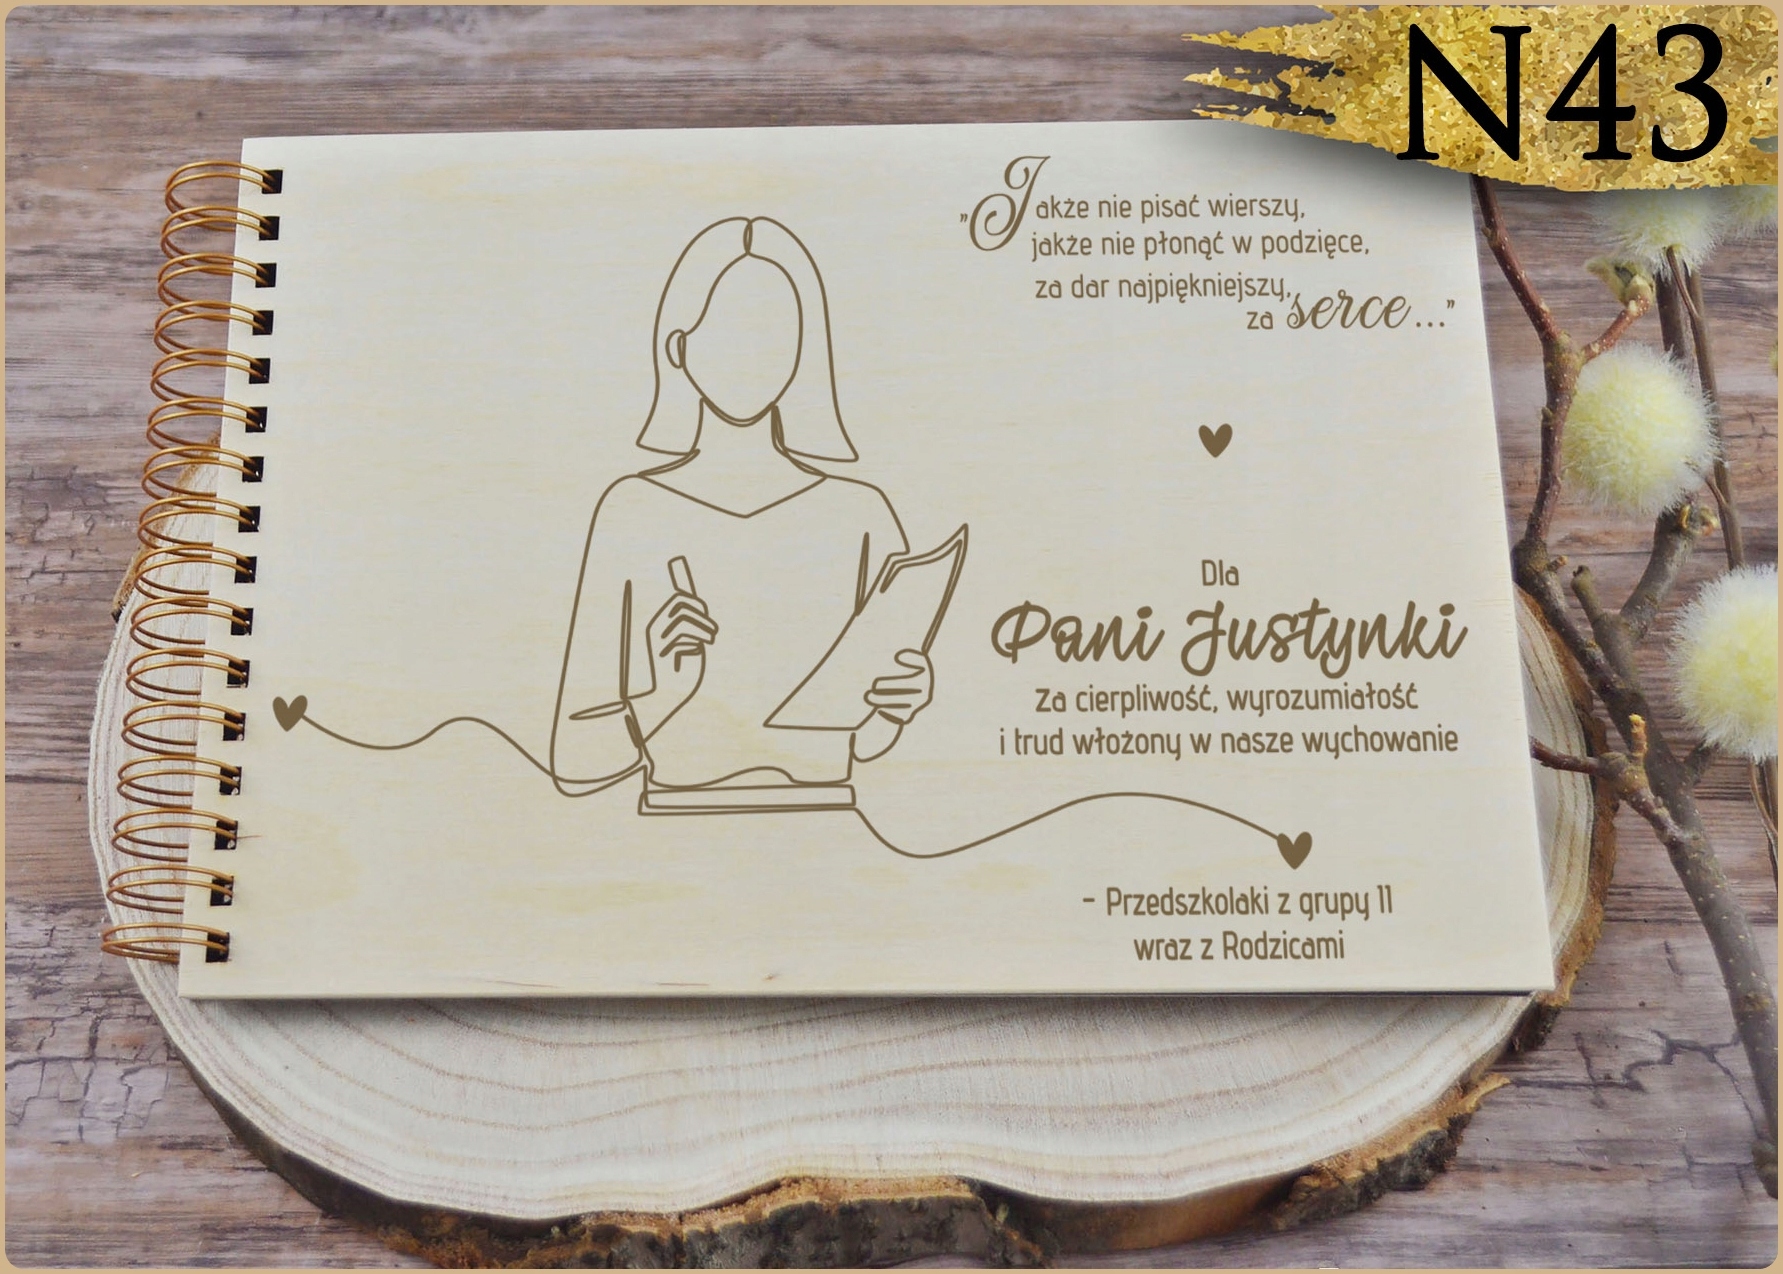 N43
„Jakże nie pisać wierszy,
jakże nie płonąć w podzięce,
za dar najpiękniejszy,
za serce..."
Dla
Pani Justynki
Za cierpliwość, wyrozumiałość
i trud włożony w nasze wychowanie
- Przedszkolaki z grupy II
wraz z Rodzicami